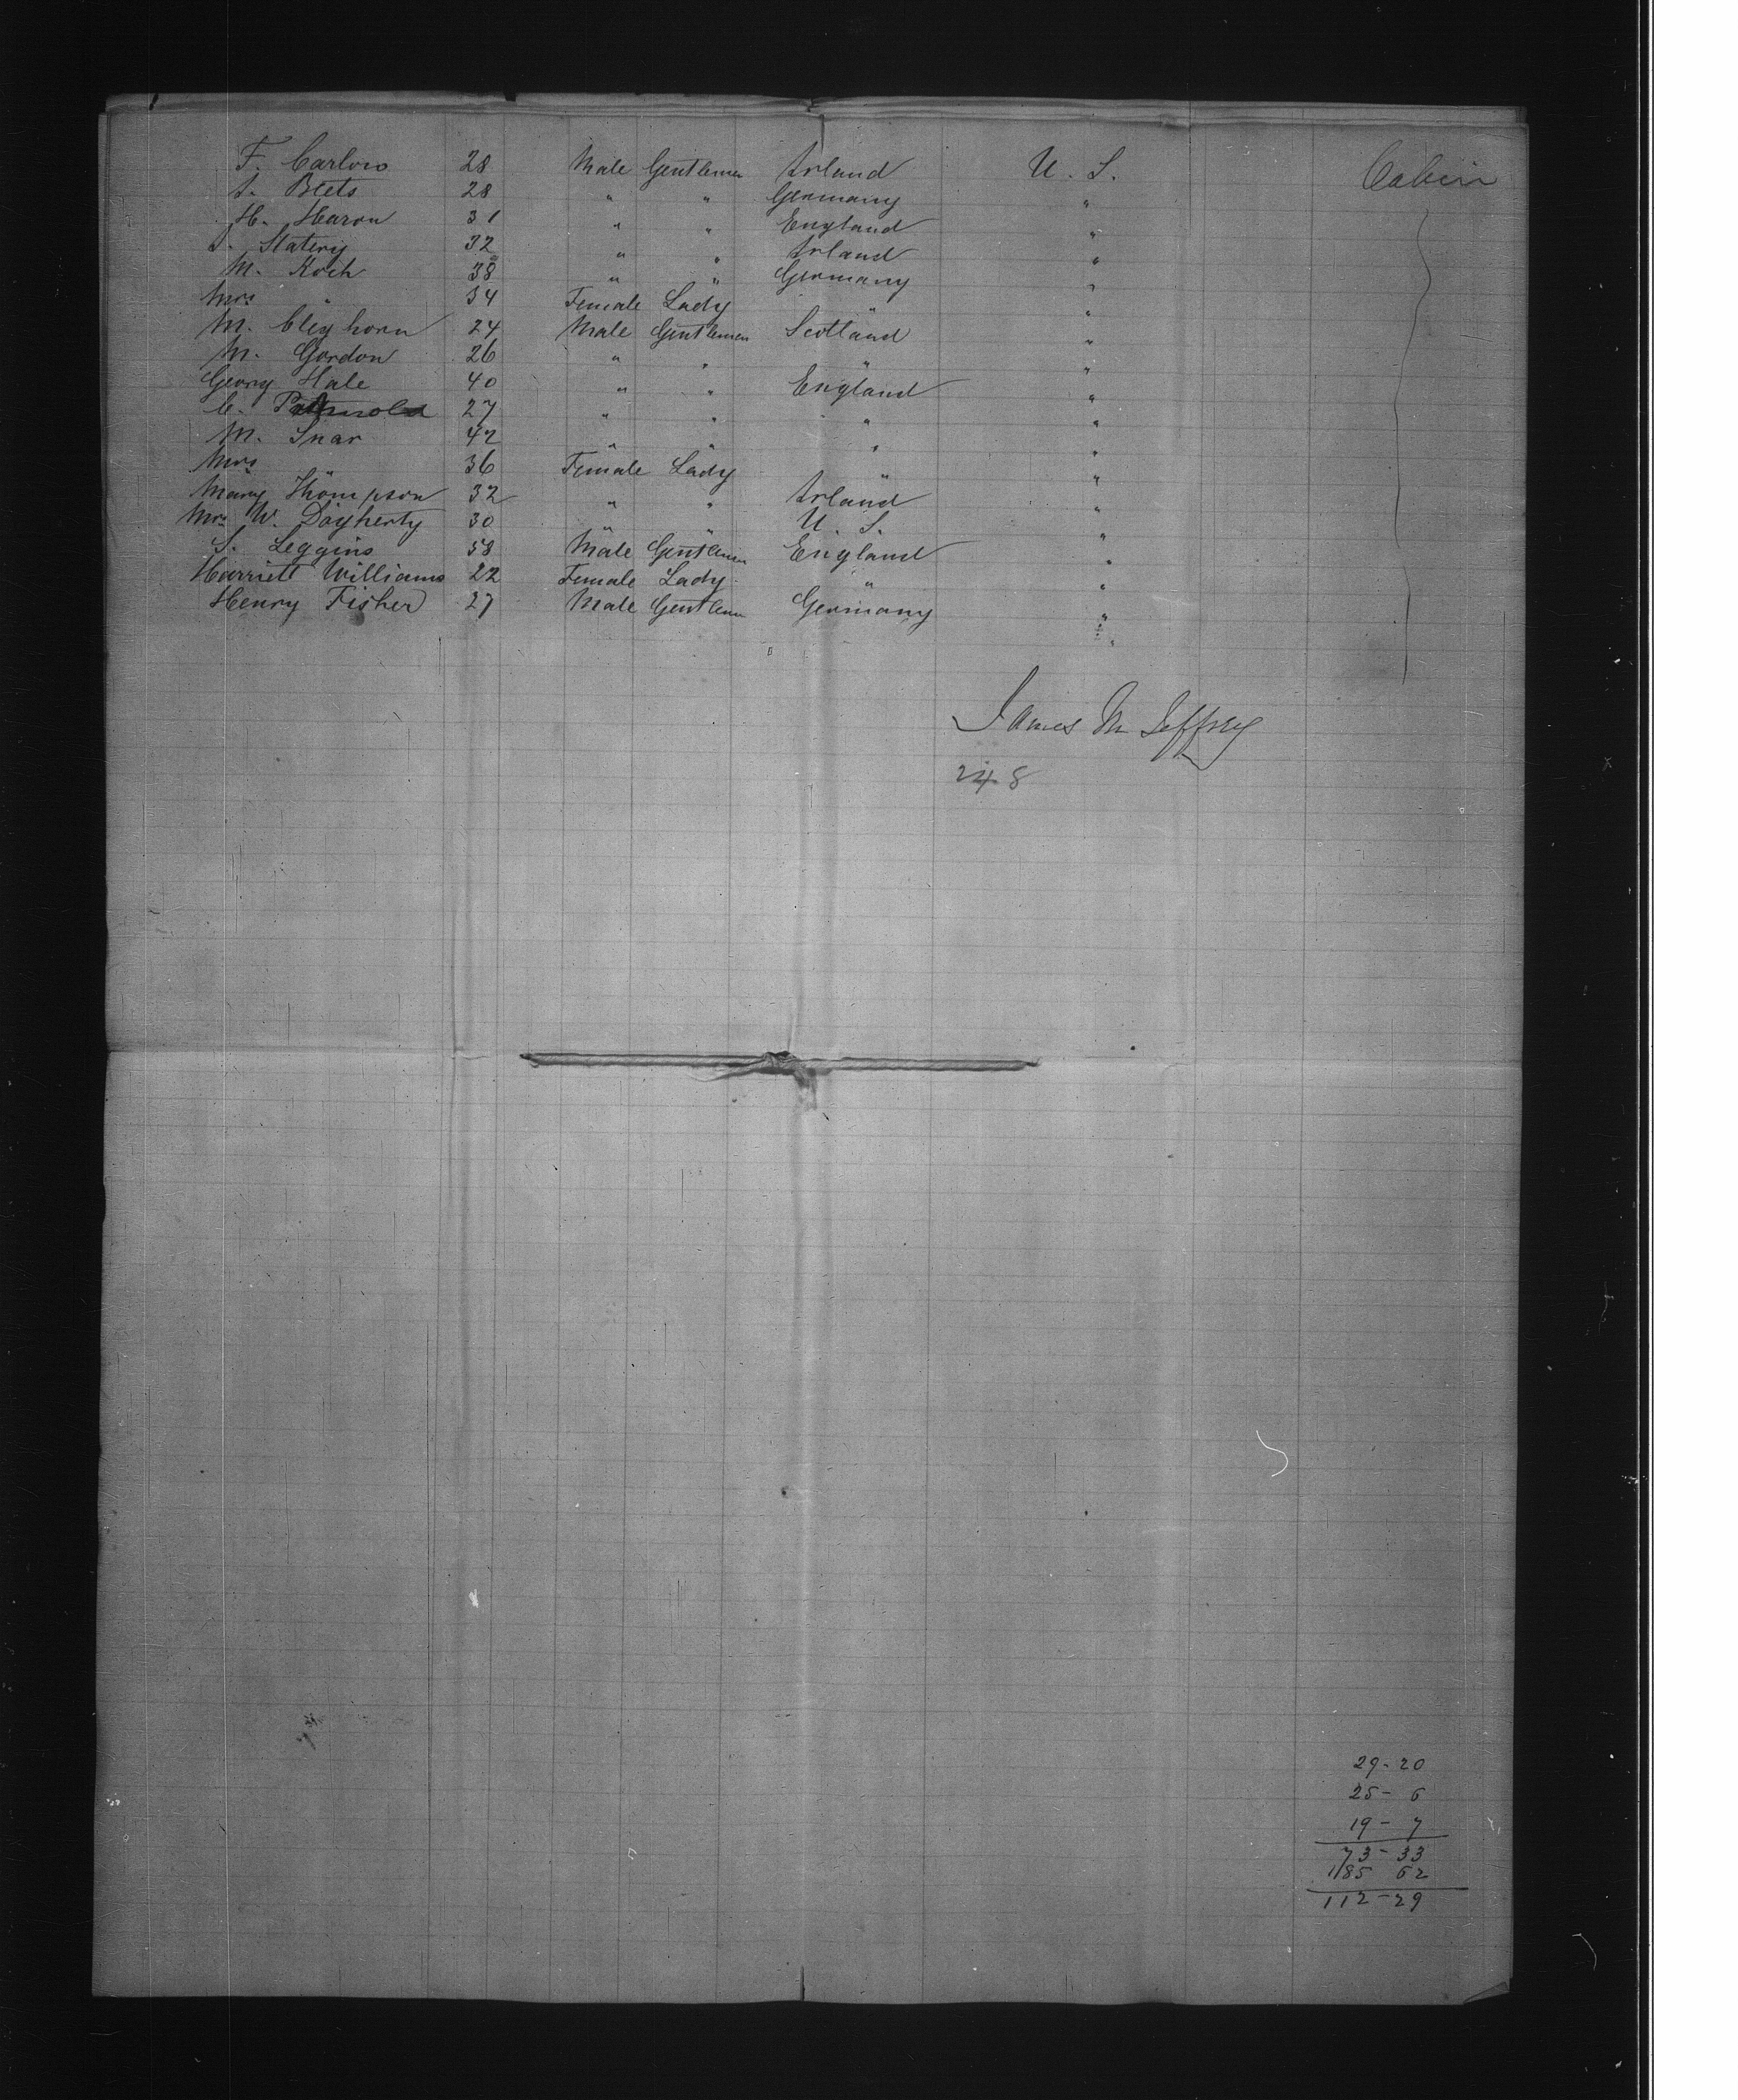 F. Carlow 28 Male Gentlemen Irland U. S. Cabin
J. Beets 28 " " Germany "
H. Haron 31 " " England "
J. Slatery 32 " " Irland "
M. Koch 38 " " Germany "
Mrs " 34 Female Lady " "
M. Cleghorn 24 Male Gentlemen Scotland "
M. Gordon 26 " " " "
Georg Hale 40 " " England "
C. 27 " " " "
M. Snar 42 " " " "
Mrs " 36 Female Lady " "
Mary Thompson 32 " " Irland "
Mrs W. Dogherty 30 " " U. S. "
S. Leggins 58 Male Gentlemen England "
Harriett Williams 22 Female Lady " "
Henry Fisher 27 Male Gentlemen Germany "
James M Jeffrey
248
29-20
25-6
19-7
73-33
185 62
112-29